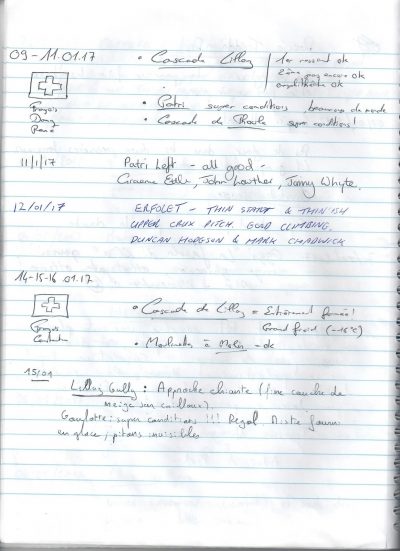 09-11.01.17
• Cascade Lillaz
1er ressaut ok
2ème pas encore ok
• Patri super conditions beaucoup de monde
• Cascade de super conditions!
François
Dany
René
11/1/17
Patri Left - all good -
Graeme John Lowther, Jonny Whyte.
12/01/17
ERFOLET - THIN START & THIN ISH
UPPER CRUX PITCH. GOOD CLIMBING.
DUNCAN HODGSON & MARK CHADWICK
14-15-16 01.17
• Cascade de Lillaz = Entièrement formée!
Grand froid (-15°C)
François
• à - ok
15/01
Lillaz Gully : Approche chiante (fine couche de
neige sur cailloux).
Goulotte: super conditions !!! Régal
en glace, pitons invisibles